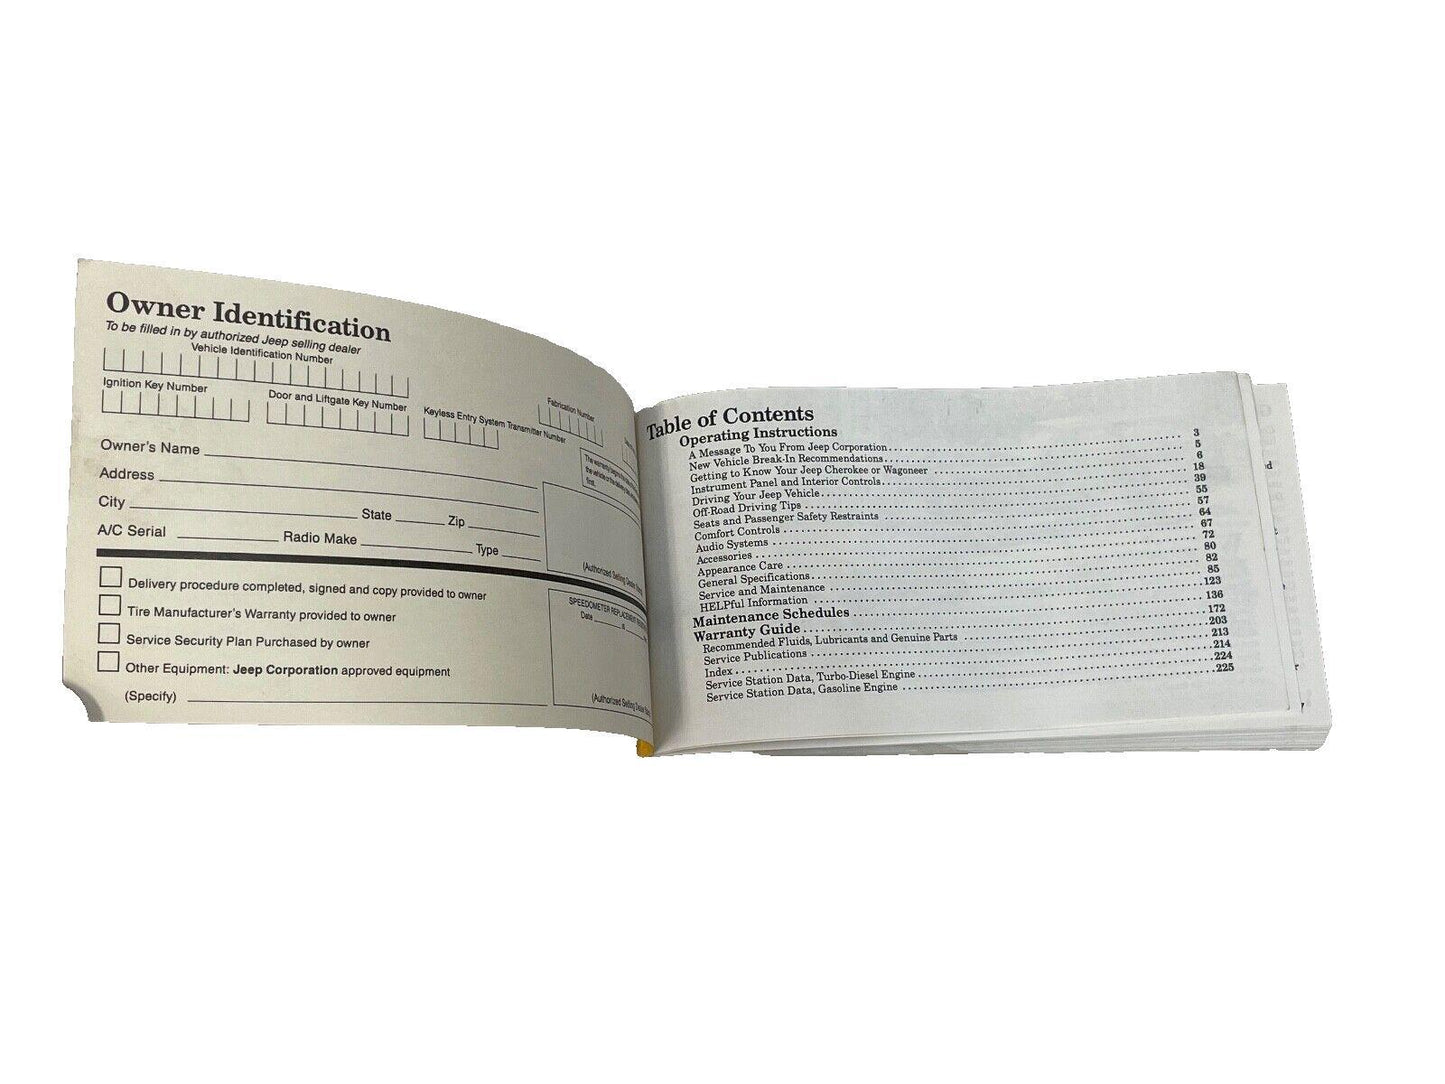 Owner Identification
To be filled in by authorized Jeep selling dealer
Vehicle Identification Number
Ignition Key Number
Door and Liftgate Key Number
Keyless Entry System Transmitter Number
Fabrication Number
Owner's Name
Address
City State Zip
A/C Serial Radio Make Type
The warranty begins
first.
(Authorized Selling Dealer
Delivery procedure completed, signed and copy provided to owner
Tire Manufacturer's Warranty provided to owner
Service Security Plan Purchased by owner
Other Equipment: Jeep Corporation approved equipment
(Specify)
SPEEDOMETER REPLACEMENT
Date at
(Authorized Selling Dealer
Table of Contents
Operating Instructions
A Message To You From Jeep Corporation 3
New Vehicle Break-In Recommendations 5
Getting to Know Your Jeep Cherokee or Wagoneer 6
Instrument Panel and Interior Controls 18
Driving Your Jeep Vehicle 39
Off-Road Driving Tips 55
Seats and Passenger Safety Restraints 57
Comfort Controls 64
Audio Systems 67
Accessories 72
Appearance Care 80
General Specifications 82
Service and Maintenance 85
HELPful Information 123
Maintenance Schedules 136
Warranty Guide 172
Recommended Fluids, Lubricants and Genuine Parts 203
Service Publications 213
Index 214
Service Station Data, Turbo-Diesel Engine 224
Service Station Data, Gasoline Engine 225